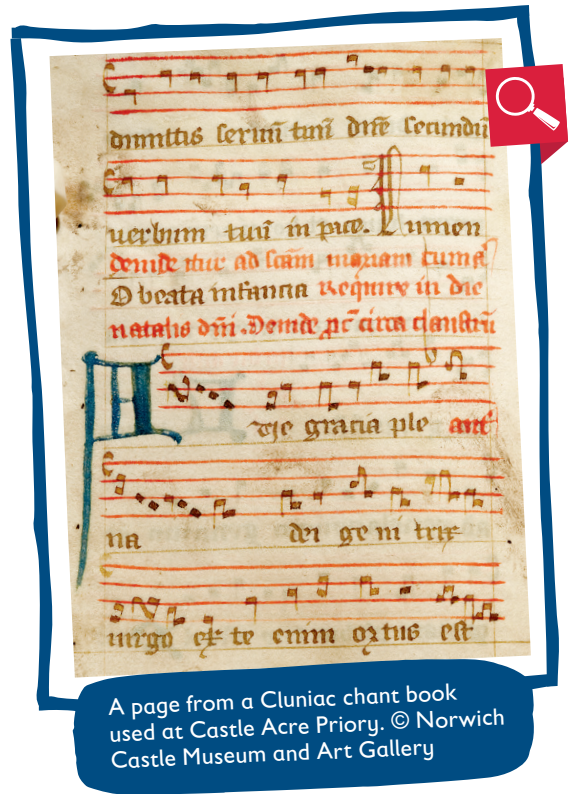 dimittis servū tuū dn̄e secundū
verbum tuū in pace. Lumen
deinde itur ad scām mariam cum añ
O beata infancia Require in die
natalis dn̄i. Deinde pc̄ circa claustrū
A ve gracia ple anī
na dei ge ni trix
virgo ex te enim ortus est
A page from a Cluniac chant book
used at Castle Acre Priory. © Norwich
Castle Museum and Art Gallery